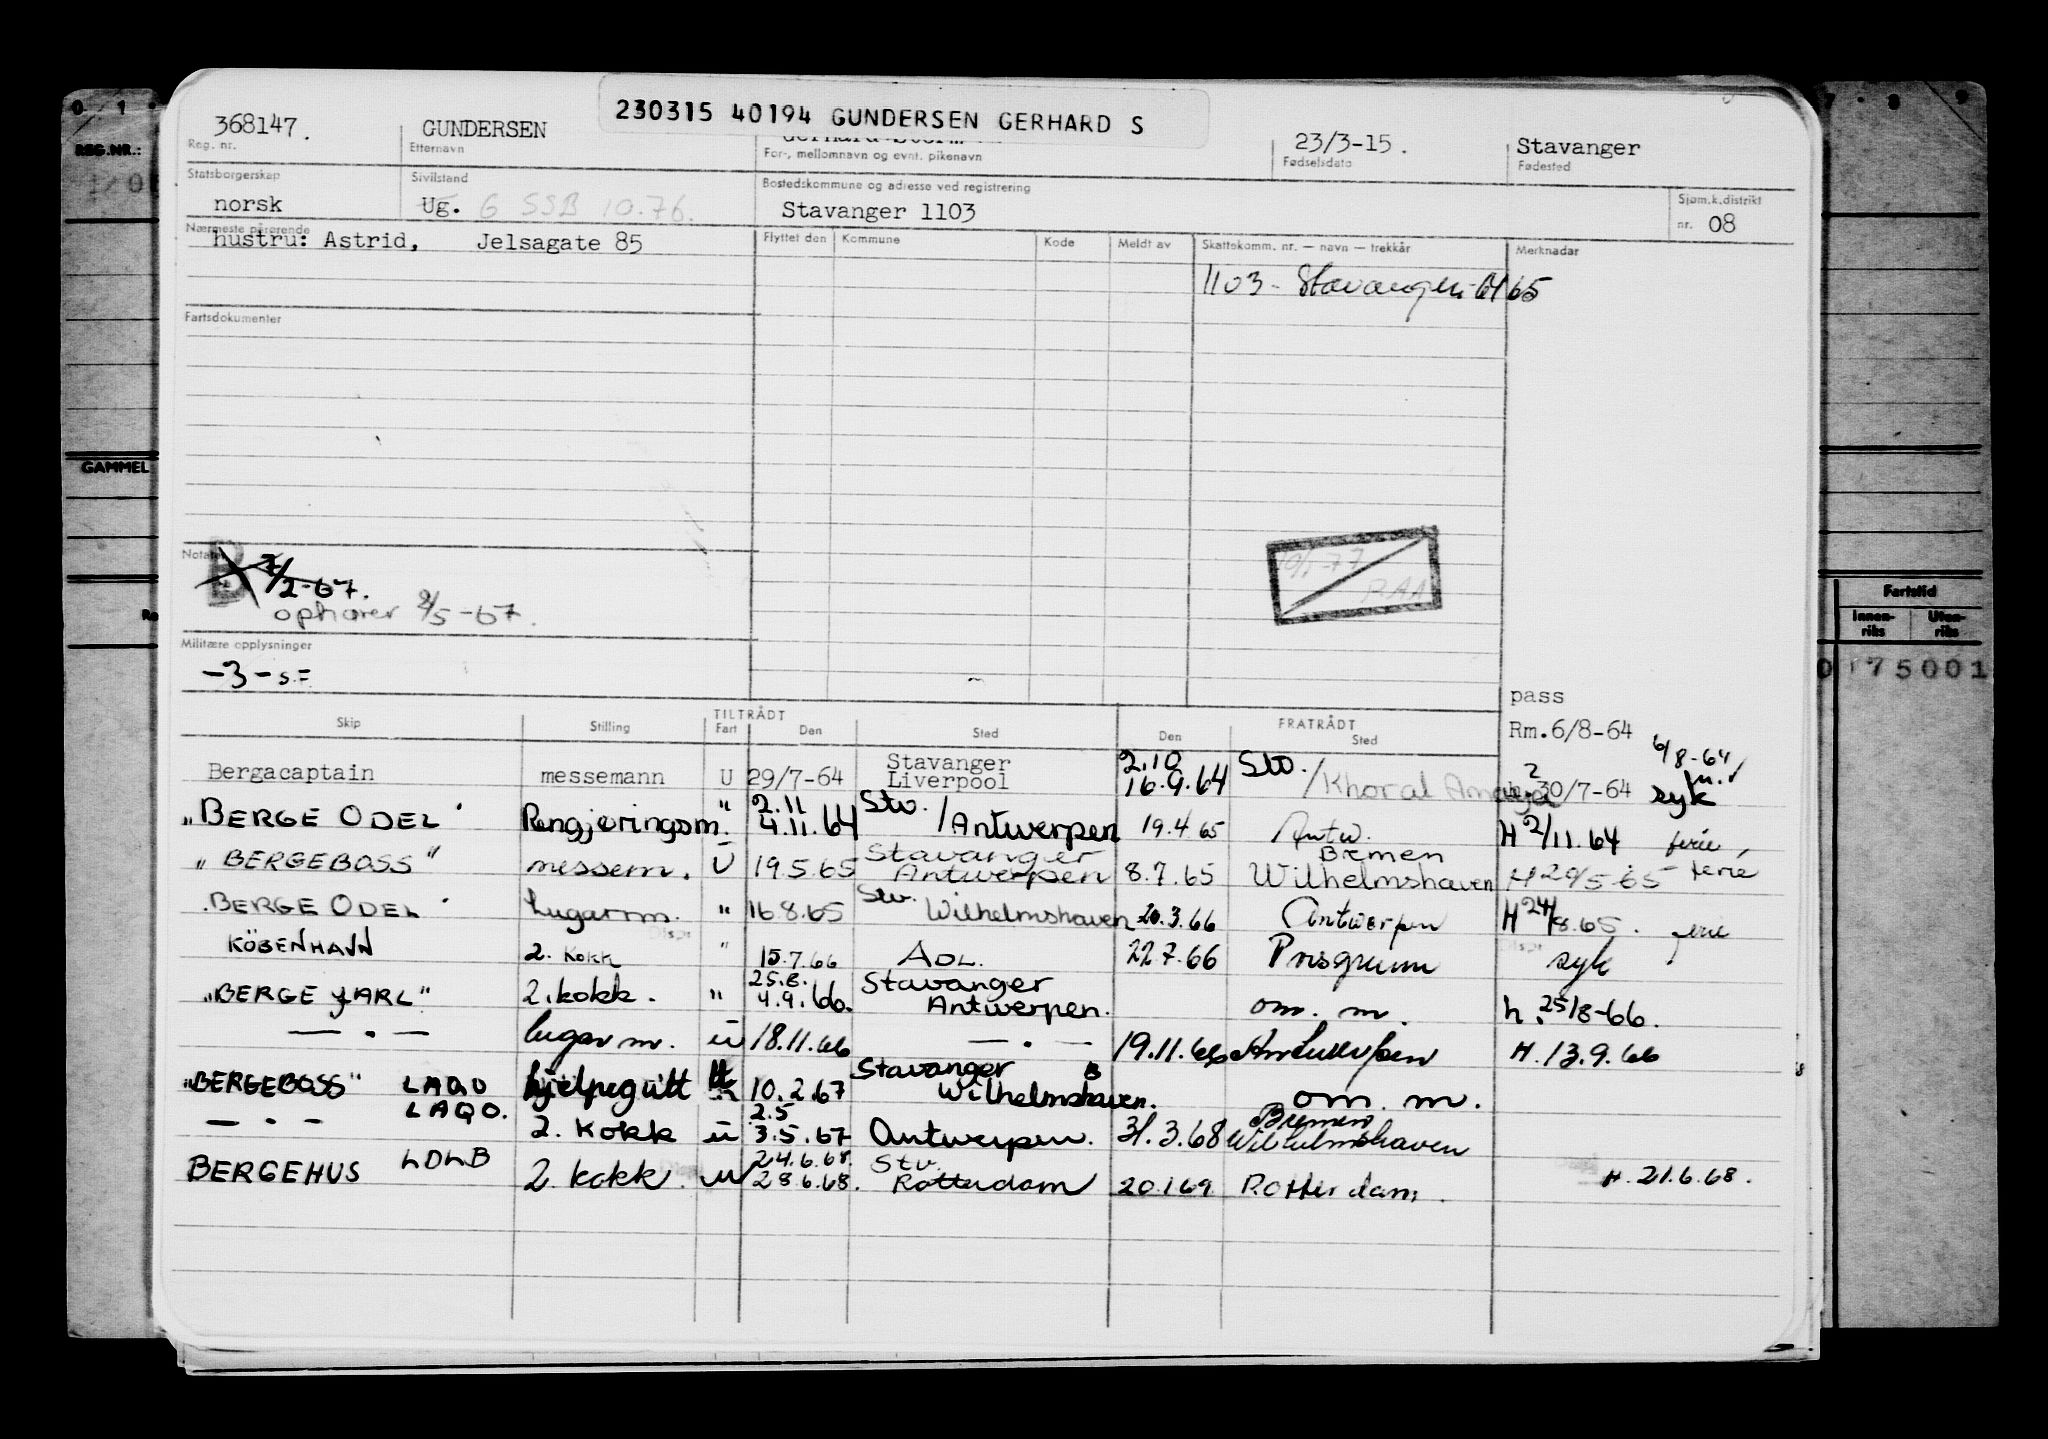 230315 40194 GUNDERSEN GERHARD S
368147. GUNDERSEN 23/3-15. Stavanger
Reg. nr. Etternavn For-, mellomnavn og evnt. pikenavn Fødselsdato Fødested
Statsborgerskap Sivilstand Bostedskommune og adresse ved registrering Sjøm.k.distrikt
norsk Ug. G SSB 10.76. Stavanger 1103 nr. 08
Nærmeste pårørende Flyttet den Kommune Kode Meldt av Skattekomm. nr. — navn — trekkår Merknader
hustru: Astrid, Jelsagate 85
1103 - Stavanger 64 65
Fartsdokumenter
Notater
B
/2-67.
ophører 2/5-67.
10/1-77
RAA
Militære opplysninger
-3- S.F
pass
Rm.6/8-64
TILTRÅDT FRATRÅDT
Skip Stilling Fart Den Sted Den Sted
6/8-64
Bergacaptain messemann U 29/7-64 Stavanger Liverpool 2.10 16.9.64 Stv. / Khoral 30/7-64 syk
"BERGE ODEL" Rengjøringsm. " 2.11 4.11.64 Stv. /Antwerpen 19.4 65 Antw. H 2/11.64 ferie
"BERGEBOSS" messem. U 19.5.65 Stavanger Antwerpen 8.7.65 Bremen Wilhelmshaven H 20/5-65 ferie
BERGE ODEL lugarm. " 16.8.65 Stv. Wilhelmshaven 20.3.66 Antwerpen H 24/8.65. ferie
KÖBENHAVN 2. Kokk " 15.7.66 ADL. 22.7.66 Porsgrunn syk
"BERGE JARL" 2. kokk. " 25.8. 4.9.66. Stavanger Antwerpen. om. m. h. 25/8-66.
— . — lugarm. u 18.11.66 — . — 19.11.66 Antwerpen H. 13.9.66
"BERGEBOSS" LAQO hjelpegutt U 10.2.67 Stavanger Wilhelmshaven. om. m.
— " — LAQO. 2. Kokk u 2.5 3.5.67 Antwerpen. 31.3.68 Bremen Wilhelmshaven
BERGEHUS LDLB 2. kokk. u 24.6.68. 28.6.68. Stv. Rotterdam 20.1.69 Rotterdam. H. 21.6.68.
REG.NR.:
GAMMEL
Fartstid
Innen-riks Uten-riks
75001